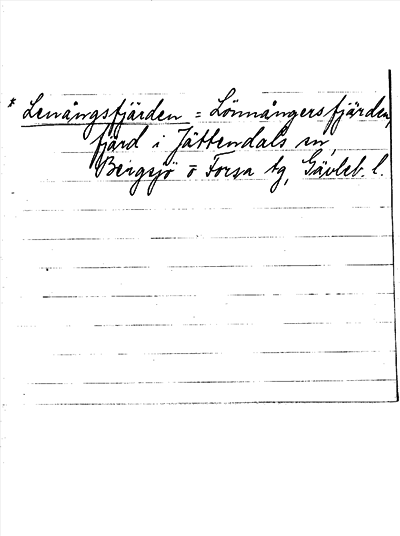 * Lenångsfjärden = Lönnångersfjärden,
fjärd i Jättendals sn,
Bergsjö o Forsa tg, Gävleb. l.